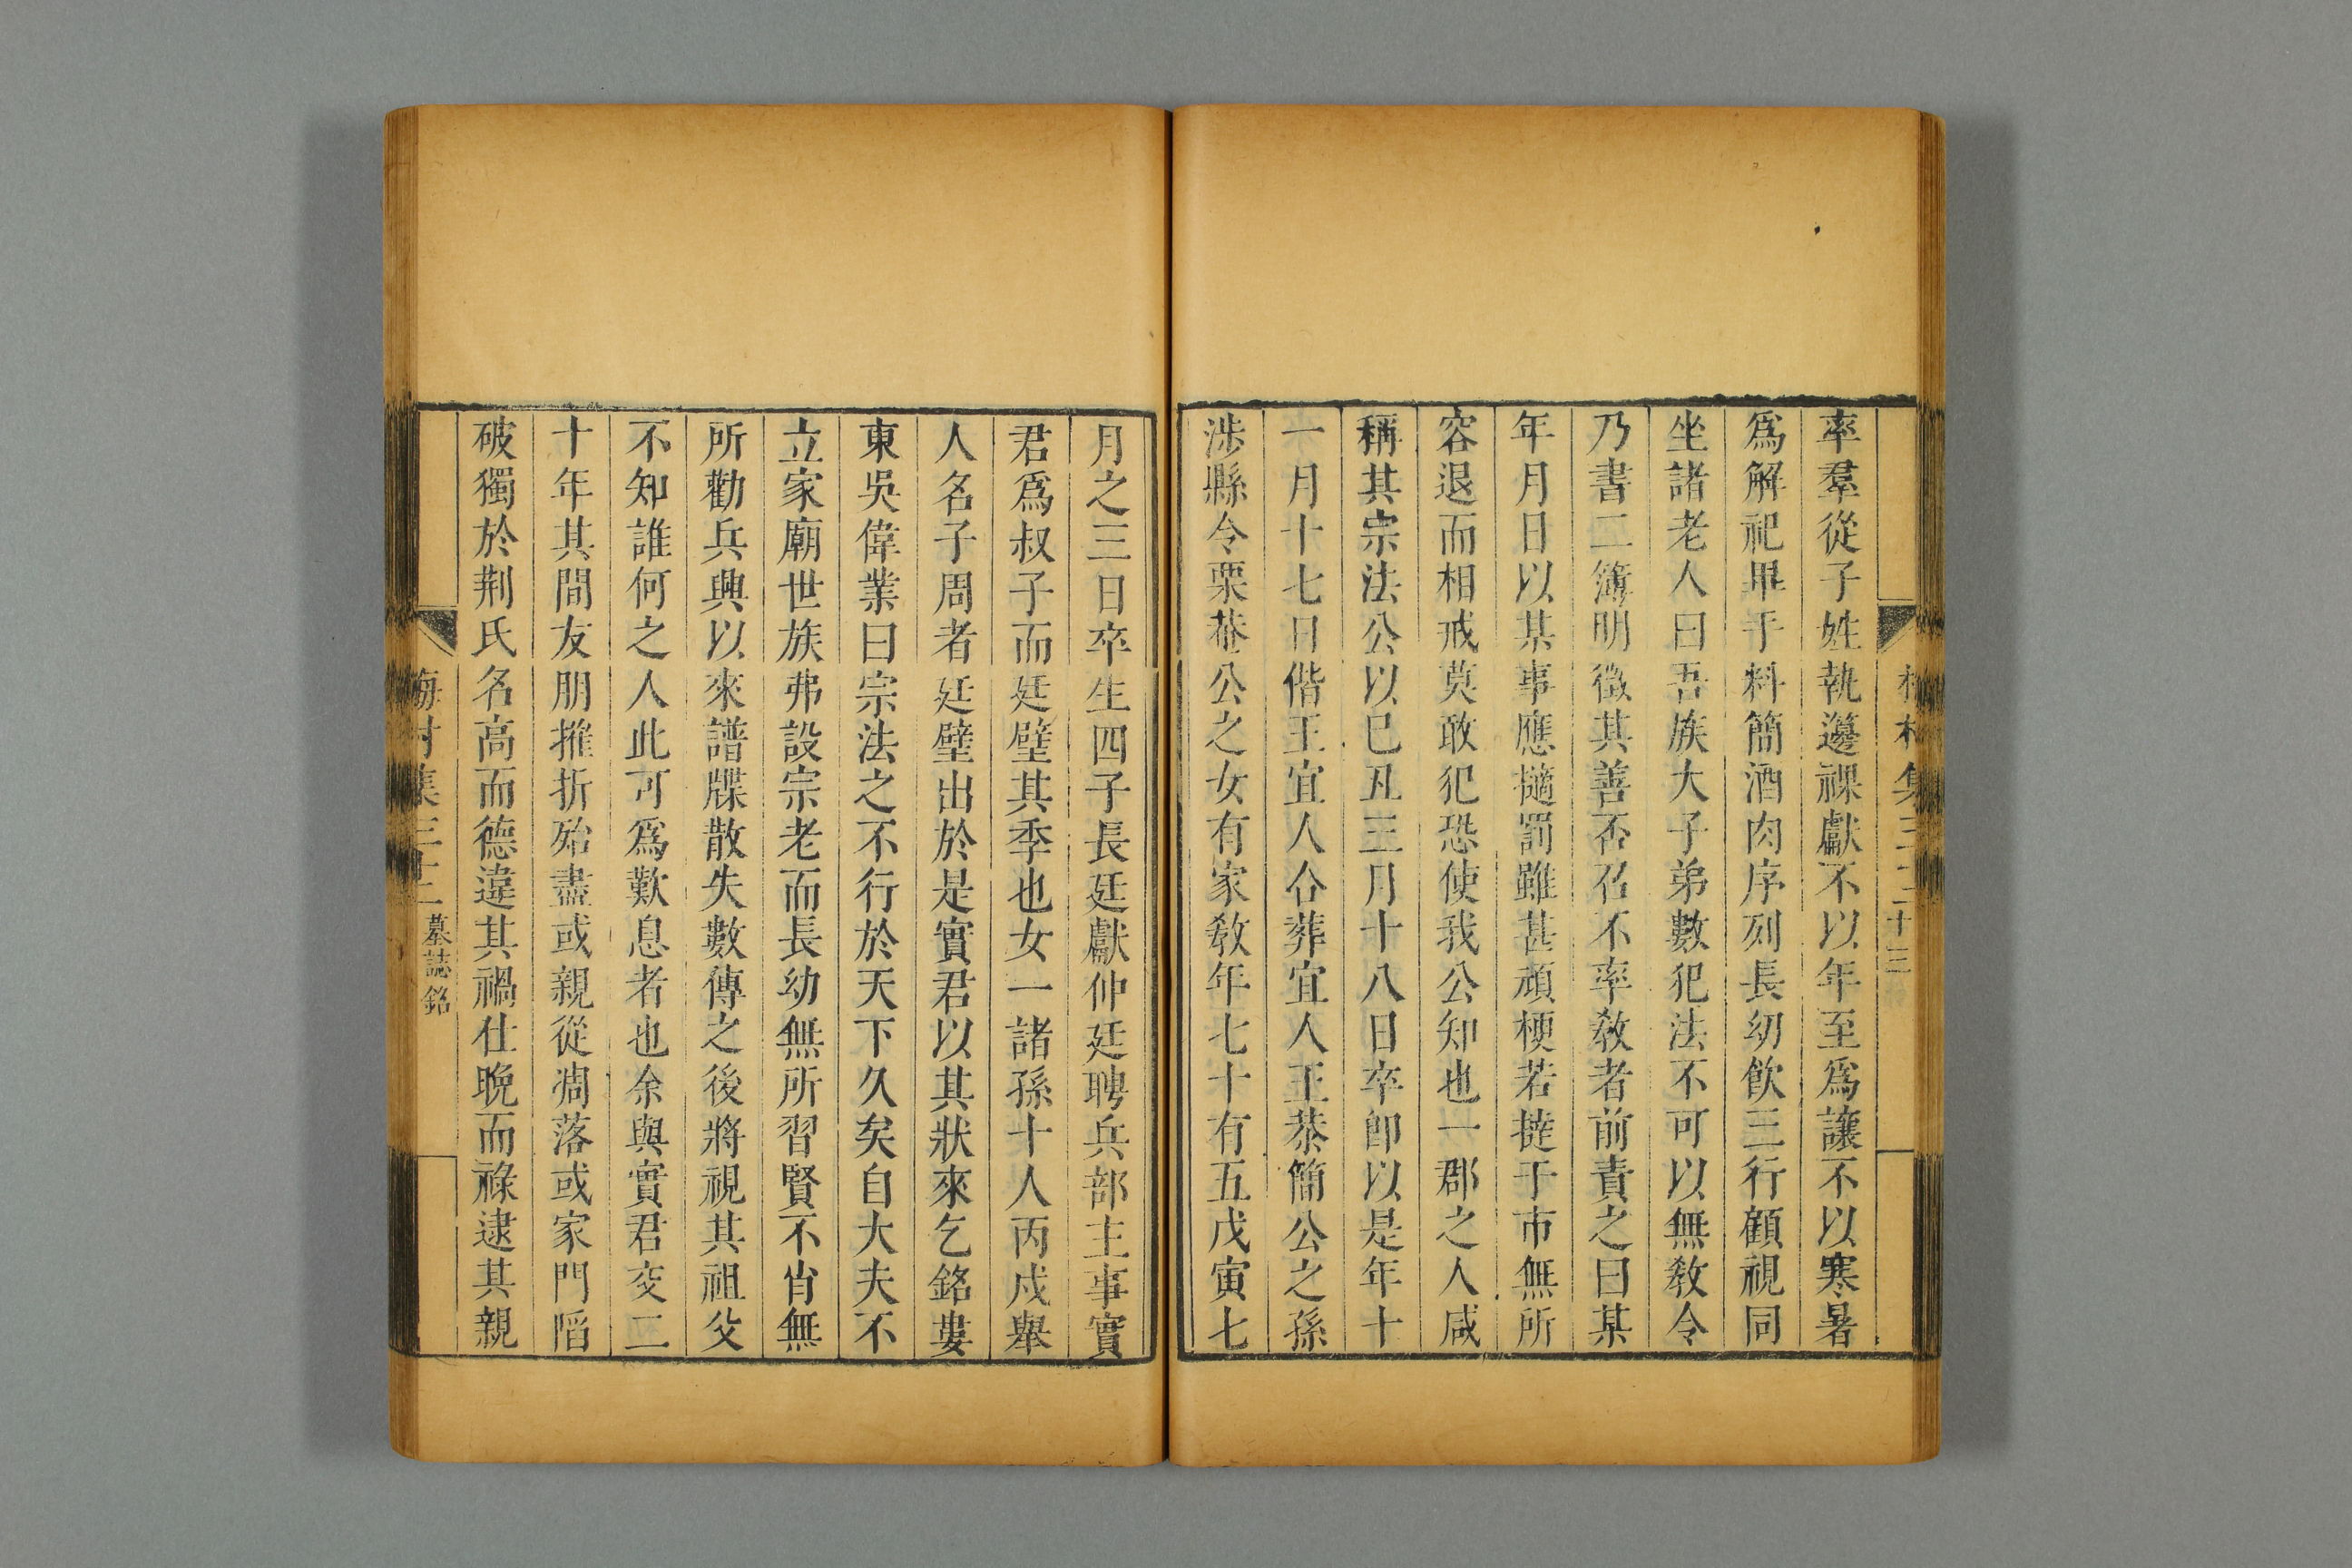 率羣從子姓執籩祼獻不以年至爲讓不以寒暑
爲解祀畢手料簡酒肉序列長幼飲三行顧視同
坐諸老人曰吾族大子弟數犯法不可以無敎令
乃書二簿明徵其善否召不率敎者前責之曰某
年月日以某事應撾罰雖甚頑梗若撻于市無所
容退而相戒莫敢犯恐使我公知也一郡之人咸
稱其宗法公以巳丑三月十八日卒卽以是年十
一月十七日偕王宜人合葬宜人王恭簡公之孫
涉縣令栗菴公之女有家敎年七十有五戊寅七
月之三日卒生四子長廷獻仲廷聘兵部主事實
君爲叔子而廷璧其季也女一諸孫十人丙戍舉
人名子周者廷壁出於是實君以其狀來乞銘婁
東吳偉業曰宗法之不行於天下久矣自大夫不
立家廟世族弗設宗老而長幼無所習賢不肖無
所勸兵興以來譜牒散失數傳之後將視其祖父
不知誰何之人此可爲歎息者也余與實君交二
十年其間友朋摧折殆盡或親從凋落或家門䧟
破獨於荆氏名高而德違其禍仕晚而祿逮其親
梅村集三十二 墓誌銘